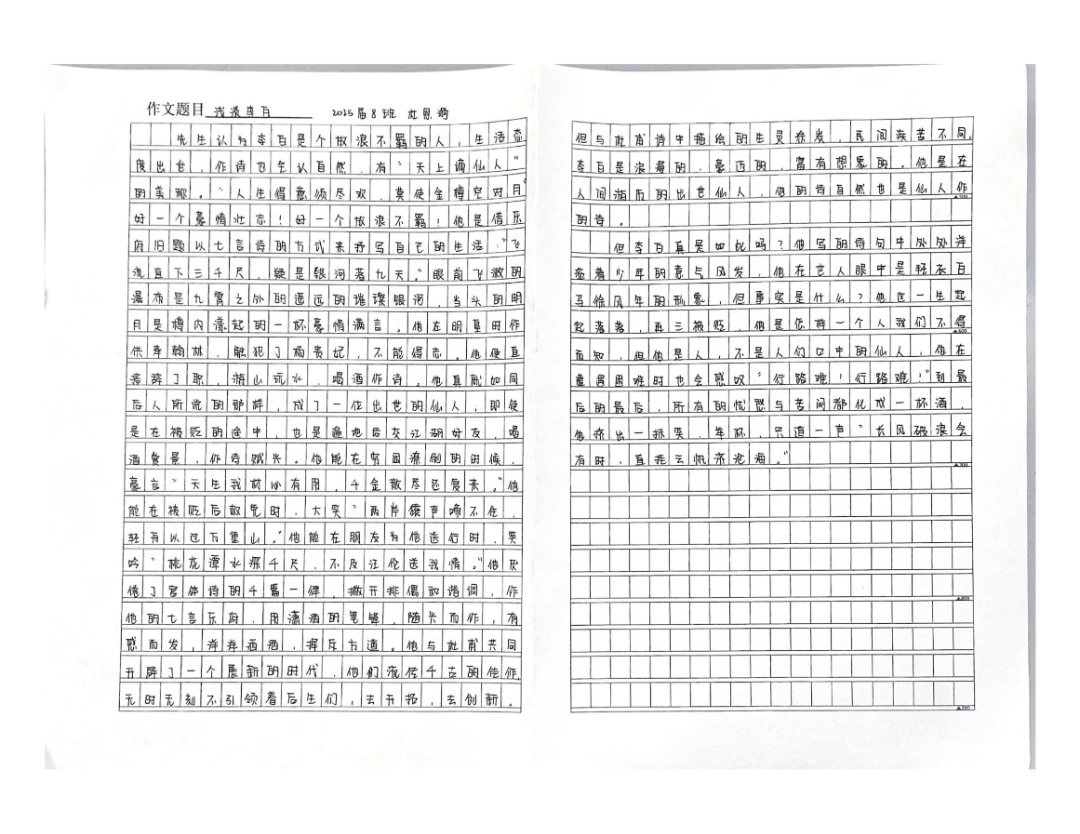 作文题目 浅谈李白 2025届8班 杜恩
先生认为李白是个放浪不羁的人,生活态
度出世,作诗也全认自然,有“天上谪仙人”
的美那。“人生得意须尽欢,莫使金樽空对月”
好一个豪情壮志!好一个放浪不羁!他是借乐
府旧题以七言诗的方式来抒写自己的生活。“飞
流直下三千尺,疑是银河落九天”眼前飞溅的
瀑布是九霄之外的遥远的璀璨银河,当头的明
月是樽内漾起的一杯豪情满言。他在明真时作
供奉翰林,触犯了杨贵妃,不能得志。他便直
接辞了职,游山玩水,喝酒作诗。他真就如同
后人所说的那样,成了一位出世的仙人,即使
是在被贬的途中,也是遍地结交江湖好友,喝
酒赏景,作诗赋兴。他能在穷困潦倒的时候,
豪言“天生我材必有用,千金散尽还复来。”他
能在被贬后赦免时,大笑“两岸猿声啼不住,
轻舟以过万重山。”他能在朋友为他送行时,笑
吟“桃花潭水深千尺,不及汪伦送我情。”他厌
倦了宫体诗的千篇一律,撇开排偶和谐调,作
他的七言乐府,用潇洒的笔锋,随兴而作,有
感而发,洋洋洒洒,挥斥方遒。他与杜甫共同
开辟了一个最新的时代,他们流传千古的佳作,
无时无刻不引领着后生们,去开拓,去创新。
但与杜甫诗中描绘的生灵涂炭,民间疾苦不同,
李白是浪漫的,豪迈的,富有想象的。他是在
人间酒后的出世仙人,他的诗自然也是仙人作
的诗。
但李白真是如此吗?他写的诗句中处处洋
溢着少年的意气风发,他在世人眼中是轻衣白
马徐风年的形象,但事实是什么?他这一生起
起落落,再三被贬,他是怎样一个人我们不得
而知,但他是人,不是人们口中的仙人,他在
遭遇困难时也会感叹“行路难!行路难!”到最
后的最后,所有的忧愁与苦闷都化成一杯酒,
他挤出一抹笑,举杯,只道一声“长风破浪会
有时,直挂云帆济沧海。”